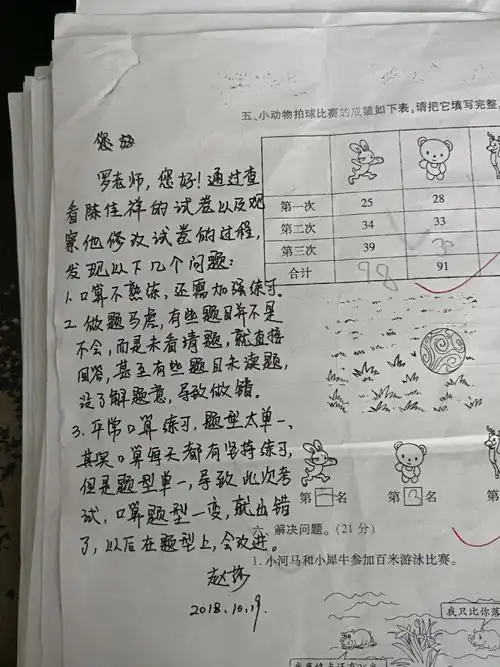 您好
罗老师，您好！通过查
看陈佳祥的试卷以及观
察他修改试卷的过程，
发现以下几个问题：
1.口算不熟练，还需加强练习。
2.做题马虎，有些题目并不是
不会，而是未看清题，就直接
回答，甚至有些题目未读题，
没了解题意，导致做错。
3.平常口算练习，题型太单一，
其实口算每天都有坚持练习，
但是题型单一，导致此次考
试，口算题型一变，就出错
了，以后在题型上，会改进。
赵莎
2018.10.19.
五、小动物拍球比赛的成绩如下表，请把它填写完整
第一次 25 28
第二次 34 33
第三次 39 30
合计 98 91
第 二 名 第 三 名
六、解决问题。(21分)
1.小河马和小犀牛参加百米游泳比赛。
我只比你落